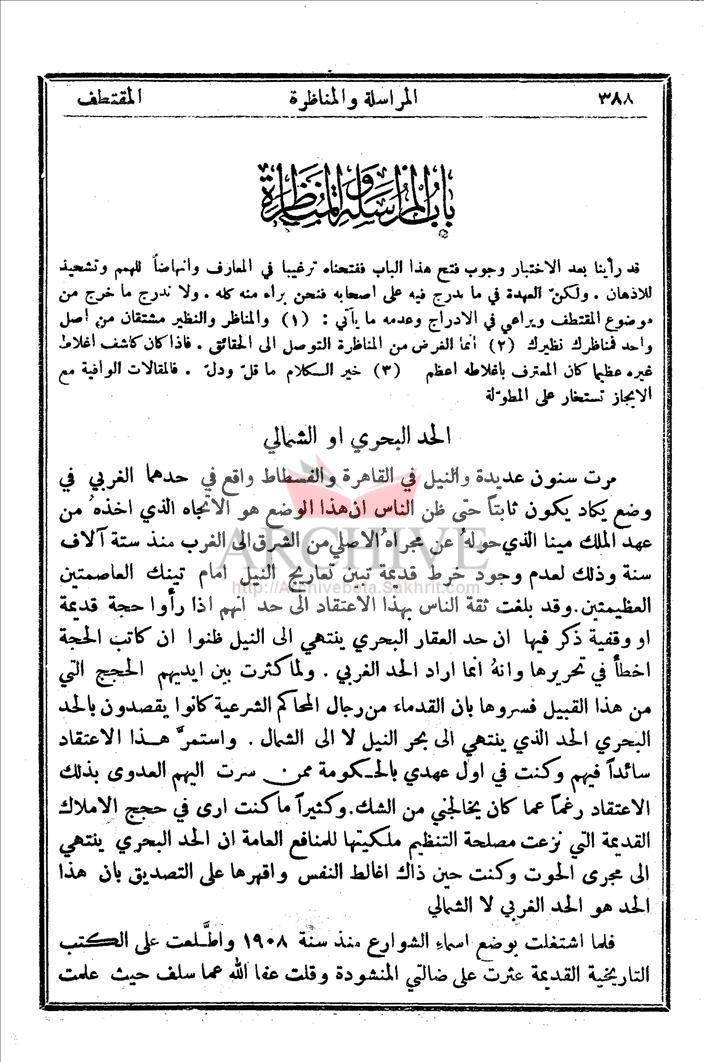 ٣٨٨ المراسلة والمناظرة المقتطف
باب المراسلة والمناظرة
قد رأينا بعد الاختبار وجوب فتح هذا الباب ففتحناه ترغيبا في المعارف وانهاضاً للهمم وتشحيذ
للاذهان . ولكنّ العهدة في ما يدرج فيه على اصحابه فنحن براء منه كله . ولا ندرج ما خرج عن
موضوع المقتطف ويراعي في الادراج وعدمه ما يأتي : (١) والمناظر والنظير مشتقان من أصل
واحد فمناظرك نظيرك (٢) أنما الفرض من المناظرة التوصل الى الحقائق . فاذا كان كاشف أغلاط
غيره عظيما كان المعترف باغلاطه اعظم (٣) خير الكلام ما قلّ ودلّ . فالمقالات الوافية مع
الايجاز تستخار على المطوّلة
الحد البحري او الشمالي
مرت سنون عديدة والنيل في القاهرة والفسطاط واقع في حدهما الغربي في
وضع يكاد يكون ثابتاً حتى ظن الناس ان هذا الوضع هو الاتجاه الذي اخذهُ من
عهد الملك مينا الذي حولهُ عن مجراهُ الاصلي من الشرق الى الغرب منذ ستة آلاف
ARCHIVE
سنة وذلك لعدم وجود خرط قديمة تبين تعاريج النيل امام تينك العاصمتين
http://Archivebeta.Sakhrit.com
العظيمتين.وقد بلغت ثقة الناس بهذا الاعتقاد الى حد انهم اذا رأوا حجة قديمة
او وقفية ذكر فيها ان حد العقار البحري ينتهي الى النيل ظنوا ان كاتب الحجة
اخطأ في تحريرها وانهُ انما اراد الحد الغربي . ولما كثرت بين ايديهم الحجج التي
من هذا القبيل فسروها بان القدماء من رجال المحاكم الشرعية كانوا يقصدون بالحد
البحري الحد الذي ينتهي الى بحر النيل لا الى الشمال . واستمرَّ هذا الاعتقاد
سائداً فيهم وكنت في اول عهدي بالحكومة ممن سرت اليهم العدوى بذلك
الاعتقاد رغماً عما كان يخالجني من الشك.وكثيراً ما كنت ارى في حجج الاملاك
القديمة التي نزعت مصلحة التنظيم ملكيتها للمنافع العامة ان الحد البحري ينتهي
الى مجرى الحوت وكنت حين ذاك اغالط النفس واقهرها على التصديق بان هذا
الحد هو الحد الغربي لا الشمالي
فلما اشتغلت بوضع اسماء الشوارع منذ سنة ١٩٠٨ واطَّلعت على الكتب
التاريخية القديمة عثرت على ضالتي المنشودة وقلت عفا الله عما سلف حيث علمت